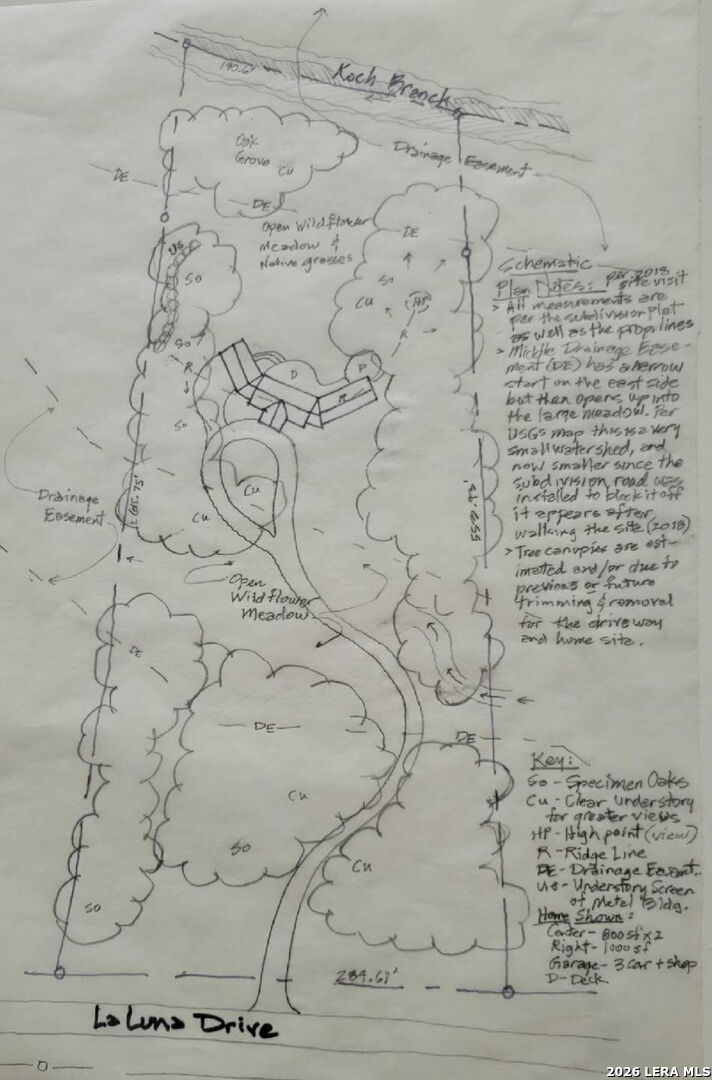 Koch Branch
Oak
Grove
Cu
Drainage Easement
DE
DE
DE
Open Wildflower
Meadow &
Native grasses
US
So
So
So
Cu
HP
R
So
R
D
P
R
So
Cu
Cu
Drainage
Easement
Open
Wildflower
Meadow
DE
DE
DE
Cu
So
So
Cu
284.61'
La Luna Drive
Schematic
Plan Notes: per 2018
site visit
> All measurements are
per the subdivision plat
as well as the prop. lines
> Middle Drainage Ease-
ment (DE) has a narrow
start on the east side
but then opens up into
the large meadow. Per
USGS map this is a very
small watershed, and
now smaller since the
subdivision road was
installed to block it off
it appears after
walking the site (2018)
> Tree canopies are est-
imated and/or due to
previous or future
trimming & removal
for the driveway
and home site.
Key:
So - Specimen Oaks
Cu - Clear Understory
for greater views
HP - High point (view)
R - Ridge Line
DE - Drainage Easmt.
US - Understory Screen
of Metal Bldg.
Home Shown:
Center - 800 sf x 2
Right - 1000 sf
Garage - 3 car + shop
D - Deck
2026 LERA MLS